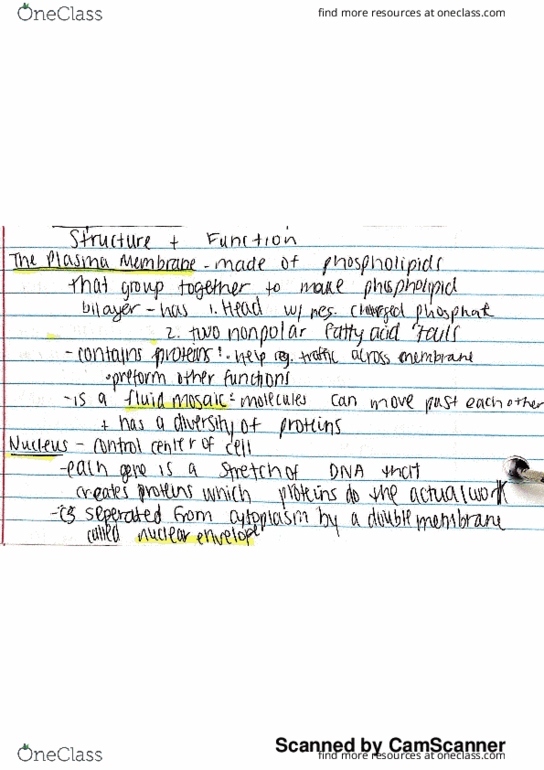 OneClass
find more resources at oneclass.com
Structure + Function
The Plasma Membrane - made of phospholipids
that group together to make phospholipid
bilayer - has 1. Head w/ neg. charged phosphat
2. two nonpolar fatty acid tails
- contains proteins: help reg. traffic across membrane
•preform other functions
- is a fluid mosaic: molecules can move past each other
+ has a diversity of proteins
Nucleus - control center of cell
- each gene is a stretch of DNA that
creates proteins which proteins do the actual work
- is seperated from cytoplasm by a double membrane
called nuclear envelope
Scanned by CamScanner
OneClass
find more resources at oneclass.com